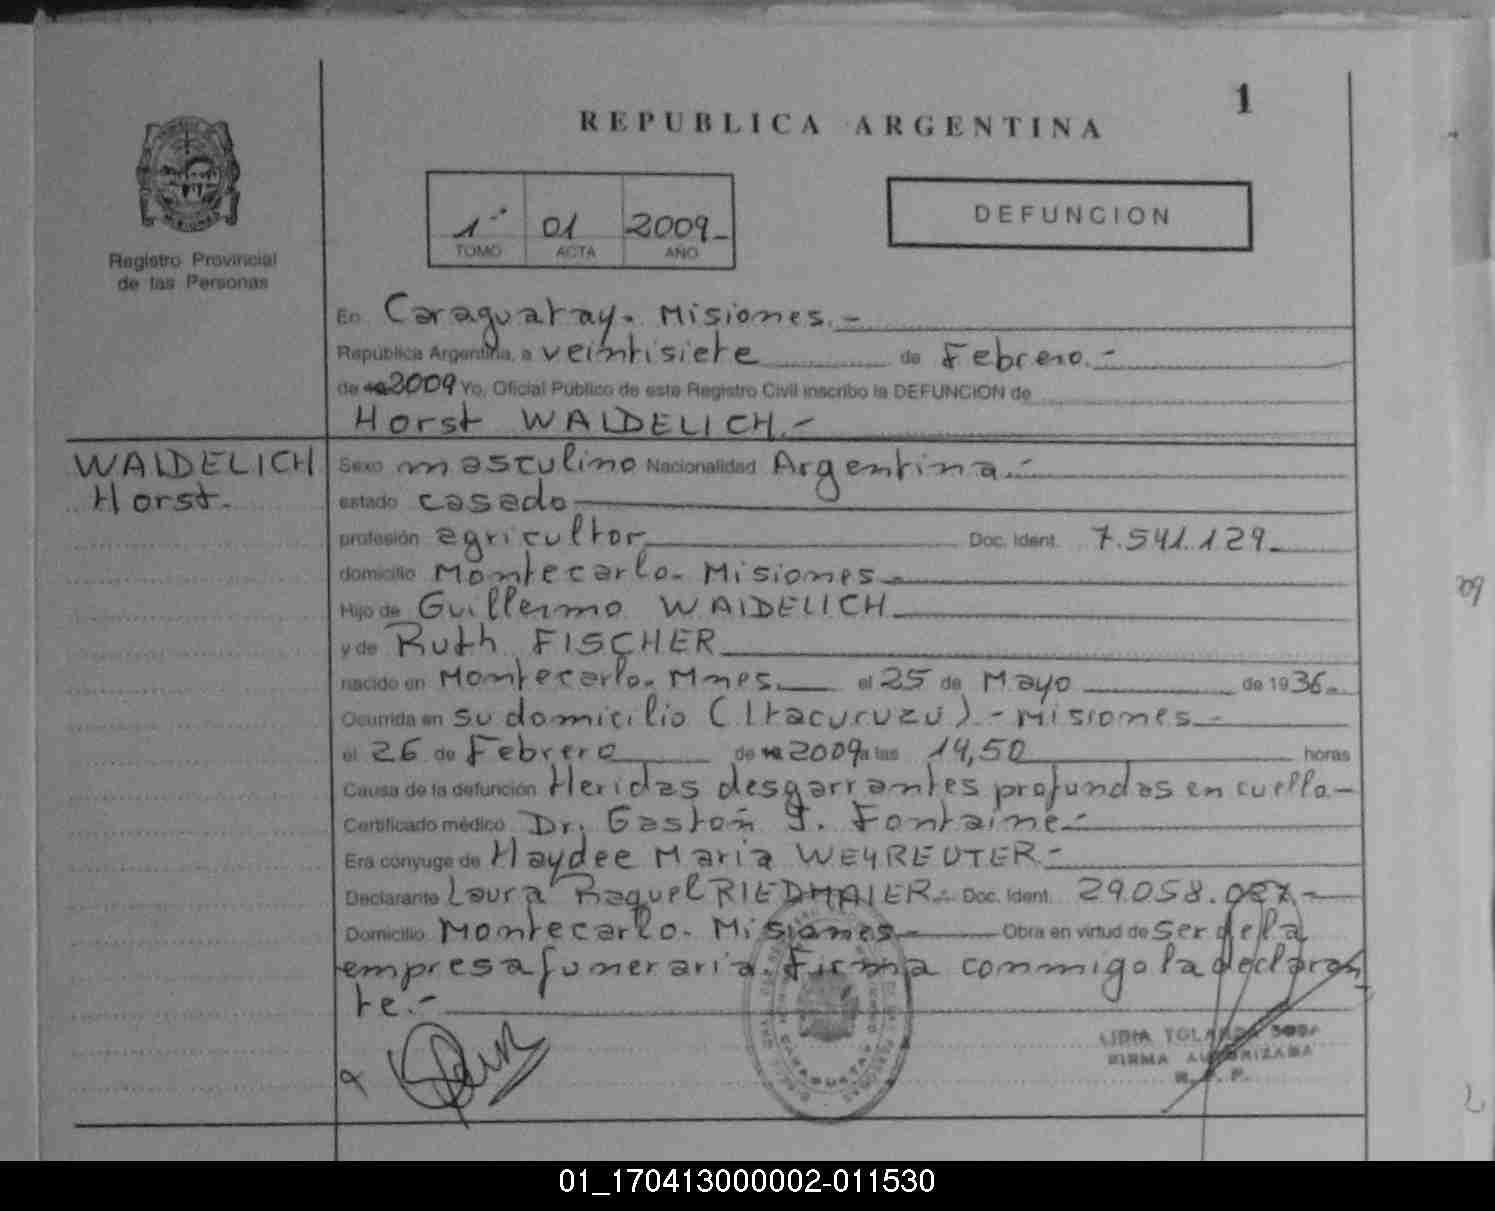 1
REPUBLICA ARGENTINA
1º 01 2009.-
TOMO ACTA AÑO
DEFUNCION
Registro Provincial
de las Personas
En Caraguatay. Misiones.-
República Argentina, a veintisiete de Febrero.-
de 2009 Yo, Oficial Público de este Registro Civil inscribo la DEFUNCION de
Horst WAIDELICH.-
WAIDELICH
Horst.
Sexo masculino Nacionalidad Argentina.-
estado casado
profesión agricultor Doc. Ident. 7.541.129.
domicilio Montecarlo. Misiones.
Hijo de Guillermo WAIDELICH
y de Ruth FISCHER
nacido en Montecarlo. Mnes. el 25 de Mayo de 1936.
Ocurrida en su domicilio (Itacuruzú).- Misiones.-
el 26 de Febrero de 2009 a las 14,50 horas
Causa de la defunción Heridas desgarrantes profundas en cuello.-
Certificado médico Dr. Gastón J. Fontaine.-
Era cónyuge de Haydee Maria WEYREUTER.-
Declarante Laura Raquel RIEDMAIER.- Doc. Ident. 29.058.
Domicilio Montecarlo. Misiones.- Obra en virtud de ser de la
empresa funeraria. Firma conmigo la declaran
te.-
FIRMA AUTORIZADA
01_170413000002-011530